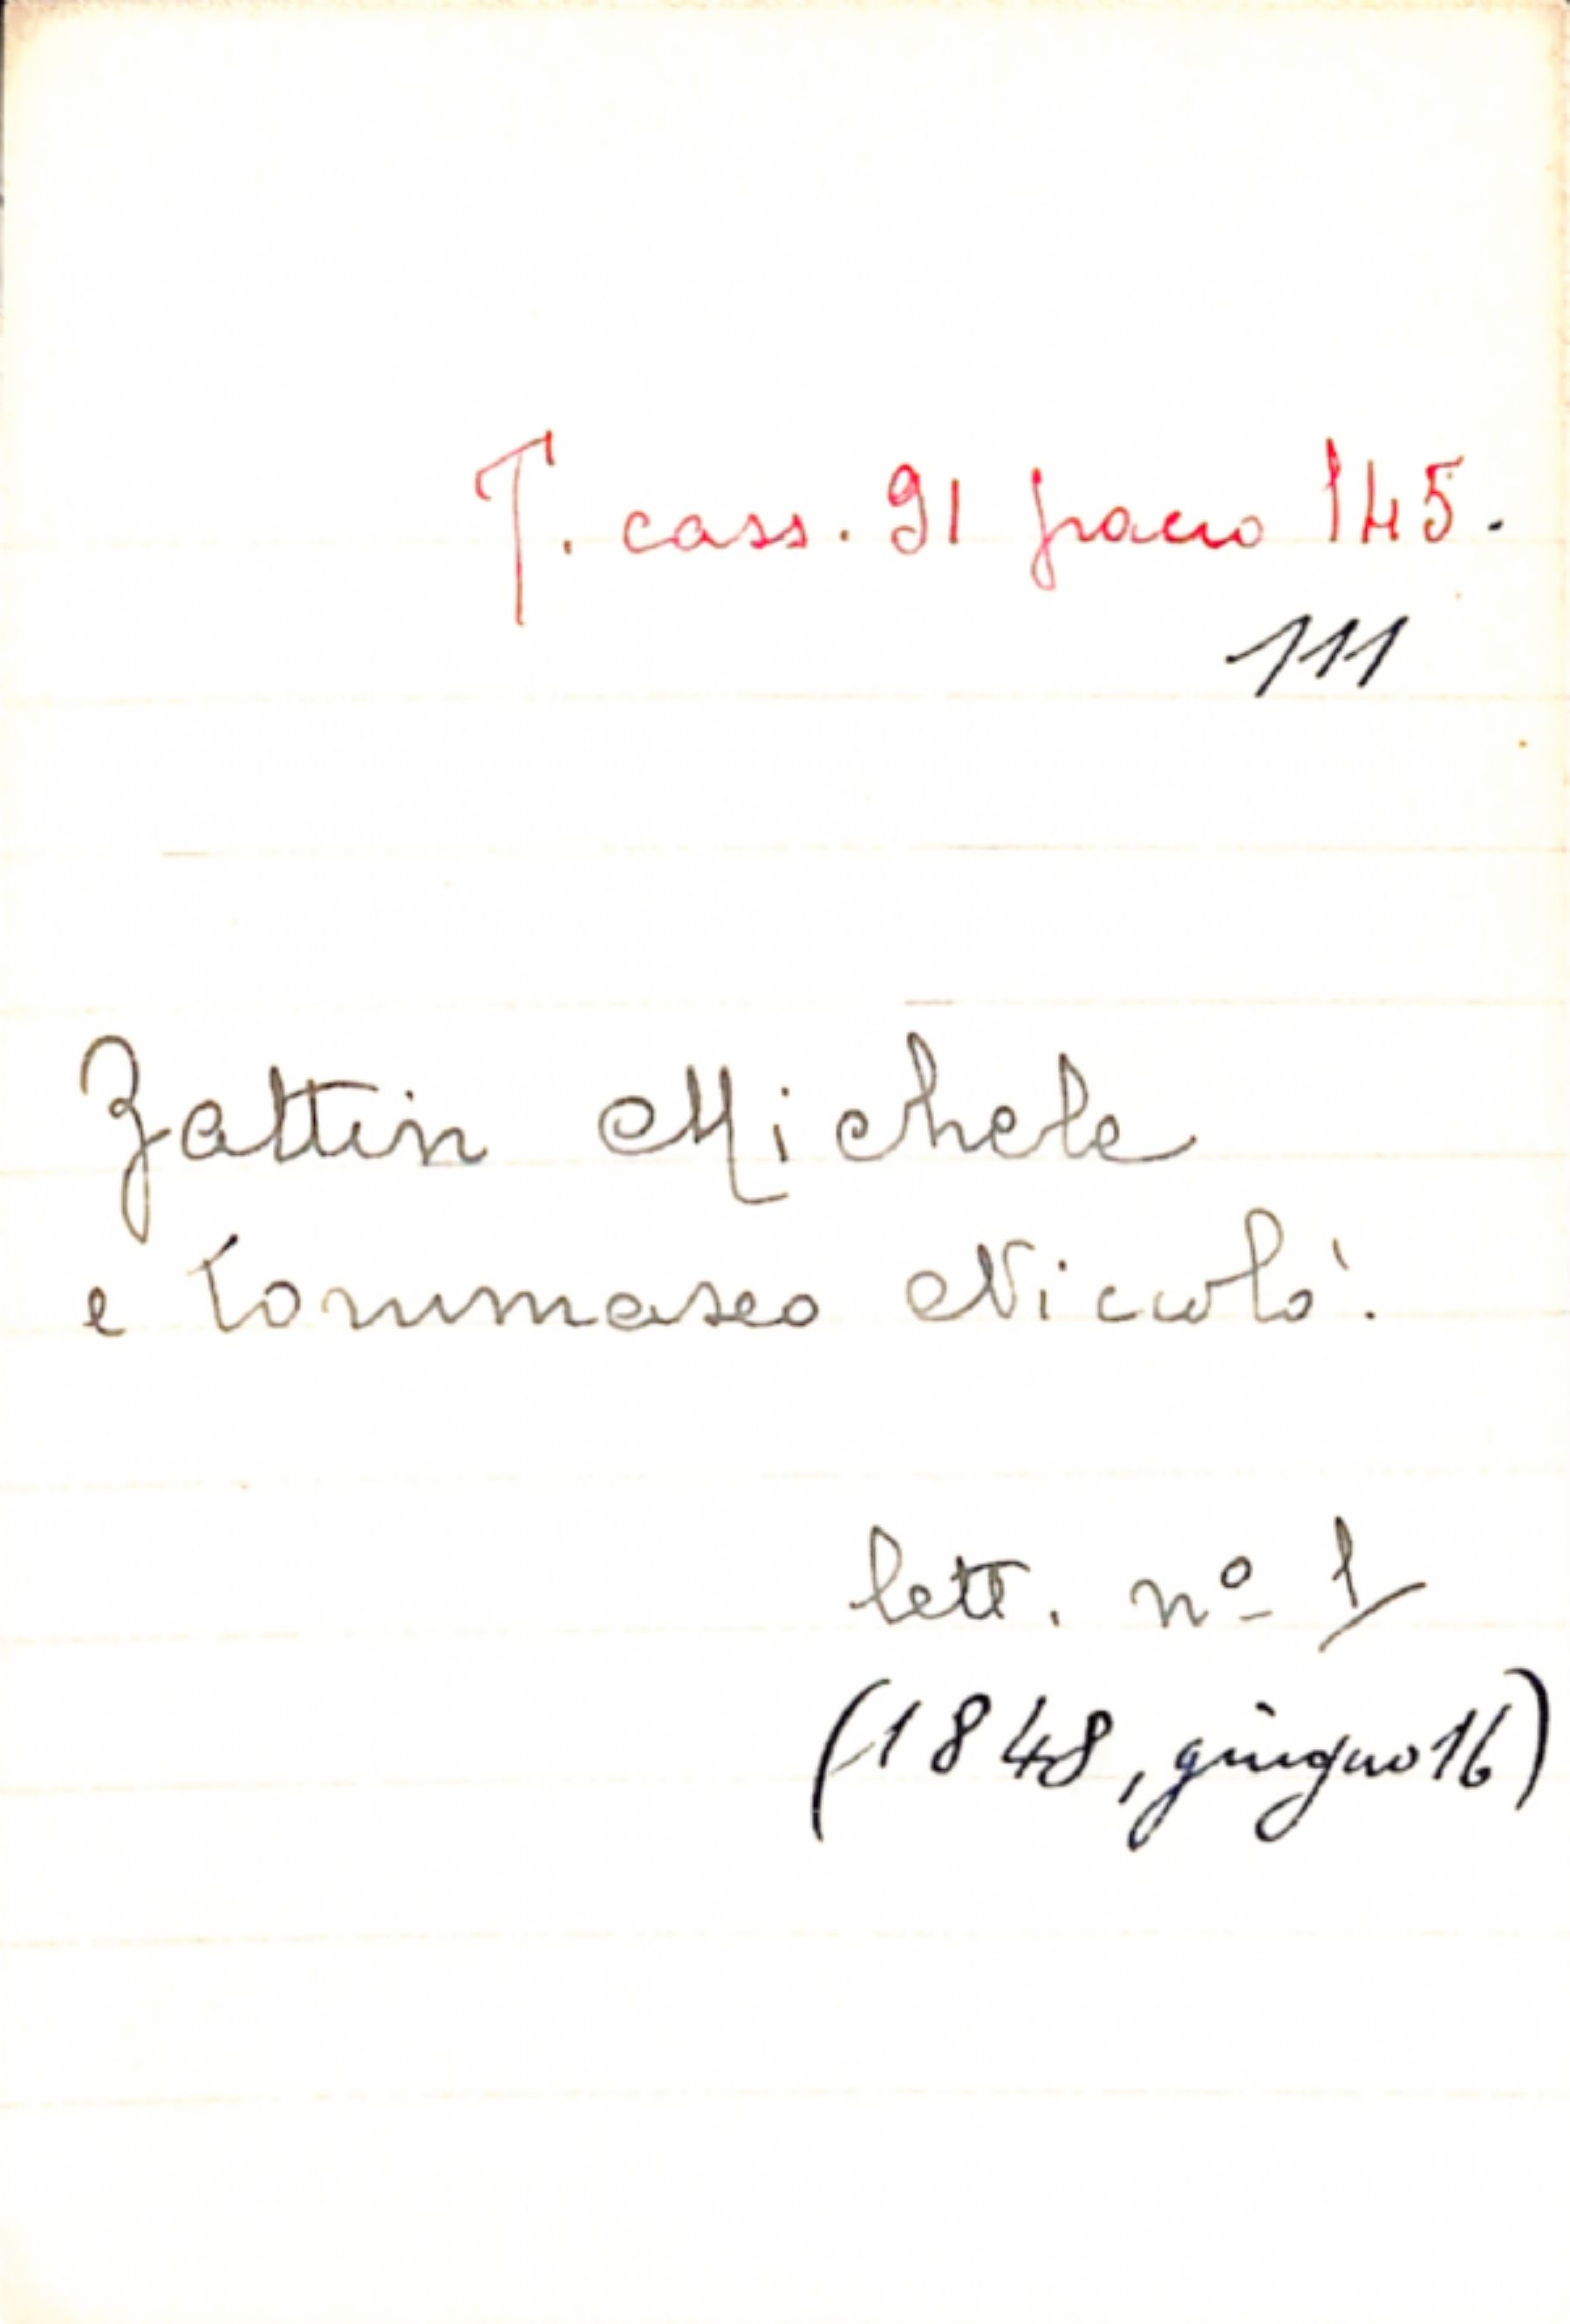 T. cass. 91 pacco 145.
111
Zattin Michele
e Tommaseo Niccolò.
lett. nº 1
(1848, giugno 16)